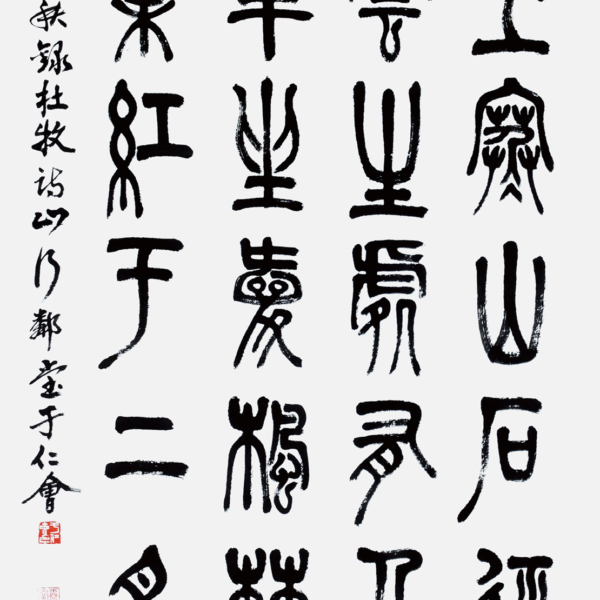 上寒山石徑
雲生處有人
車坐愛楓林
葉紅于二月
秋錄杜牧詩山行鄰堂于仁會